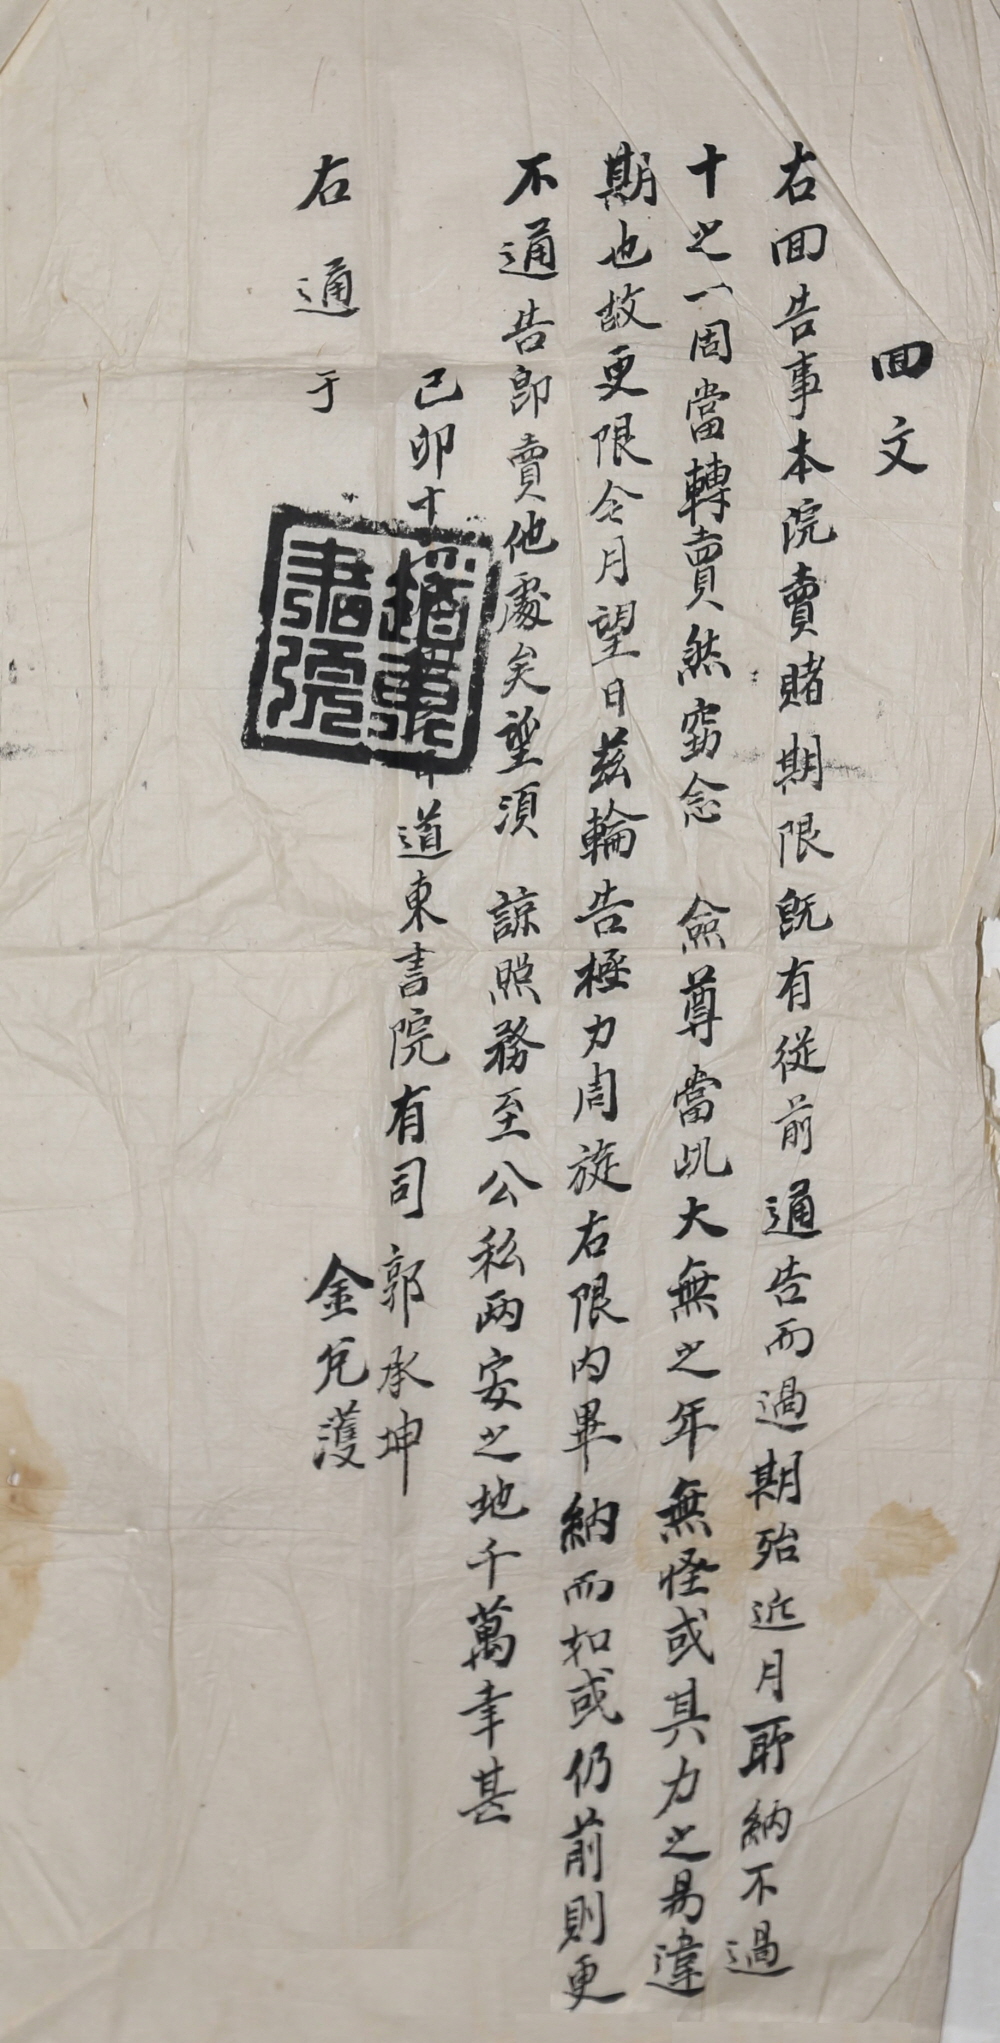 回文
右回告事本院賣賭期限旣有從前通告而過期殆近月所納不過
十之一固當轉賣然窃念 僉尊當此大無之年無怪或其力之易違
期也故更限今月望日玆輪告極力周旋右限內畢納而如或仍前則更
不通告卽賣他處矣望須 諒照務至公私兩安之地千萬幸甚
己卯十 道東書院有司 郭承坤
金允護
右通于
道東書院